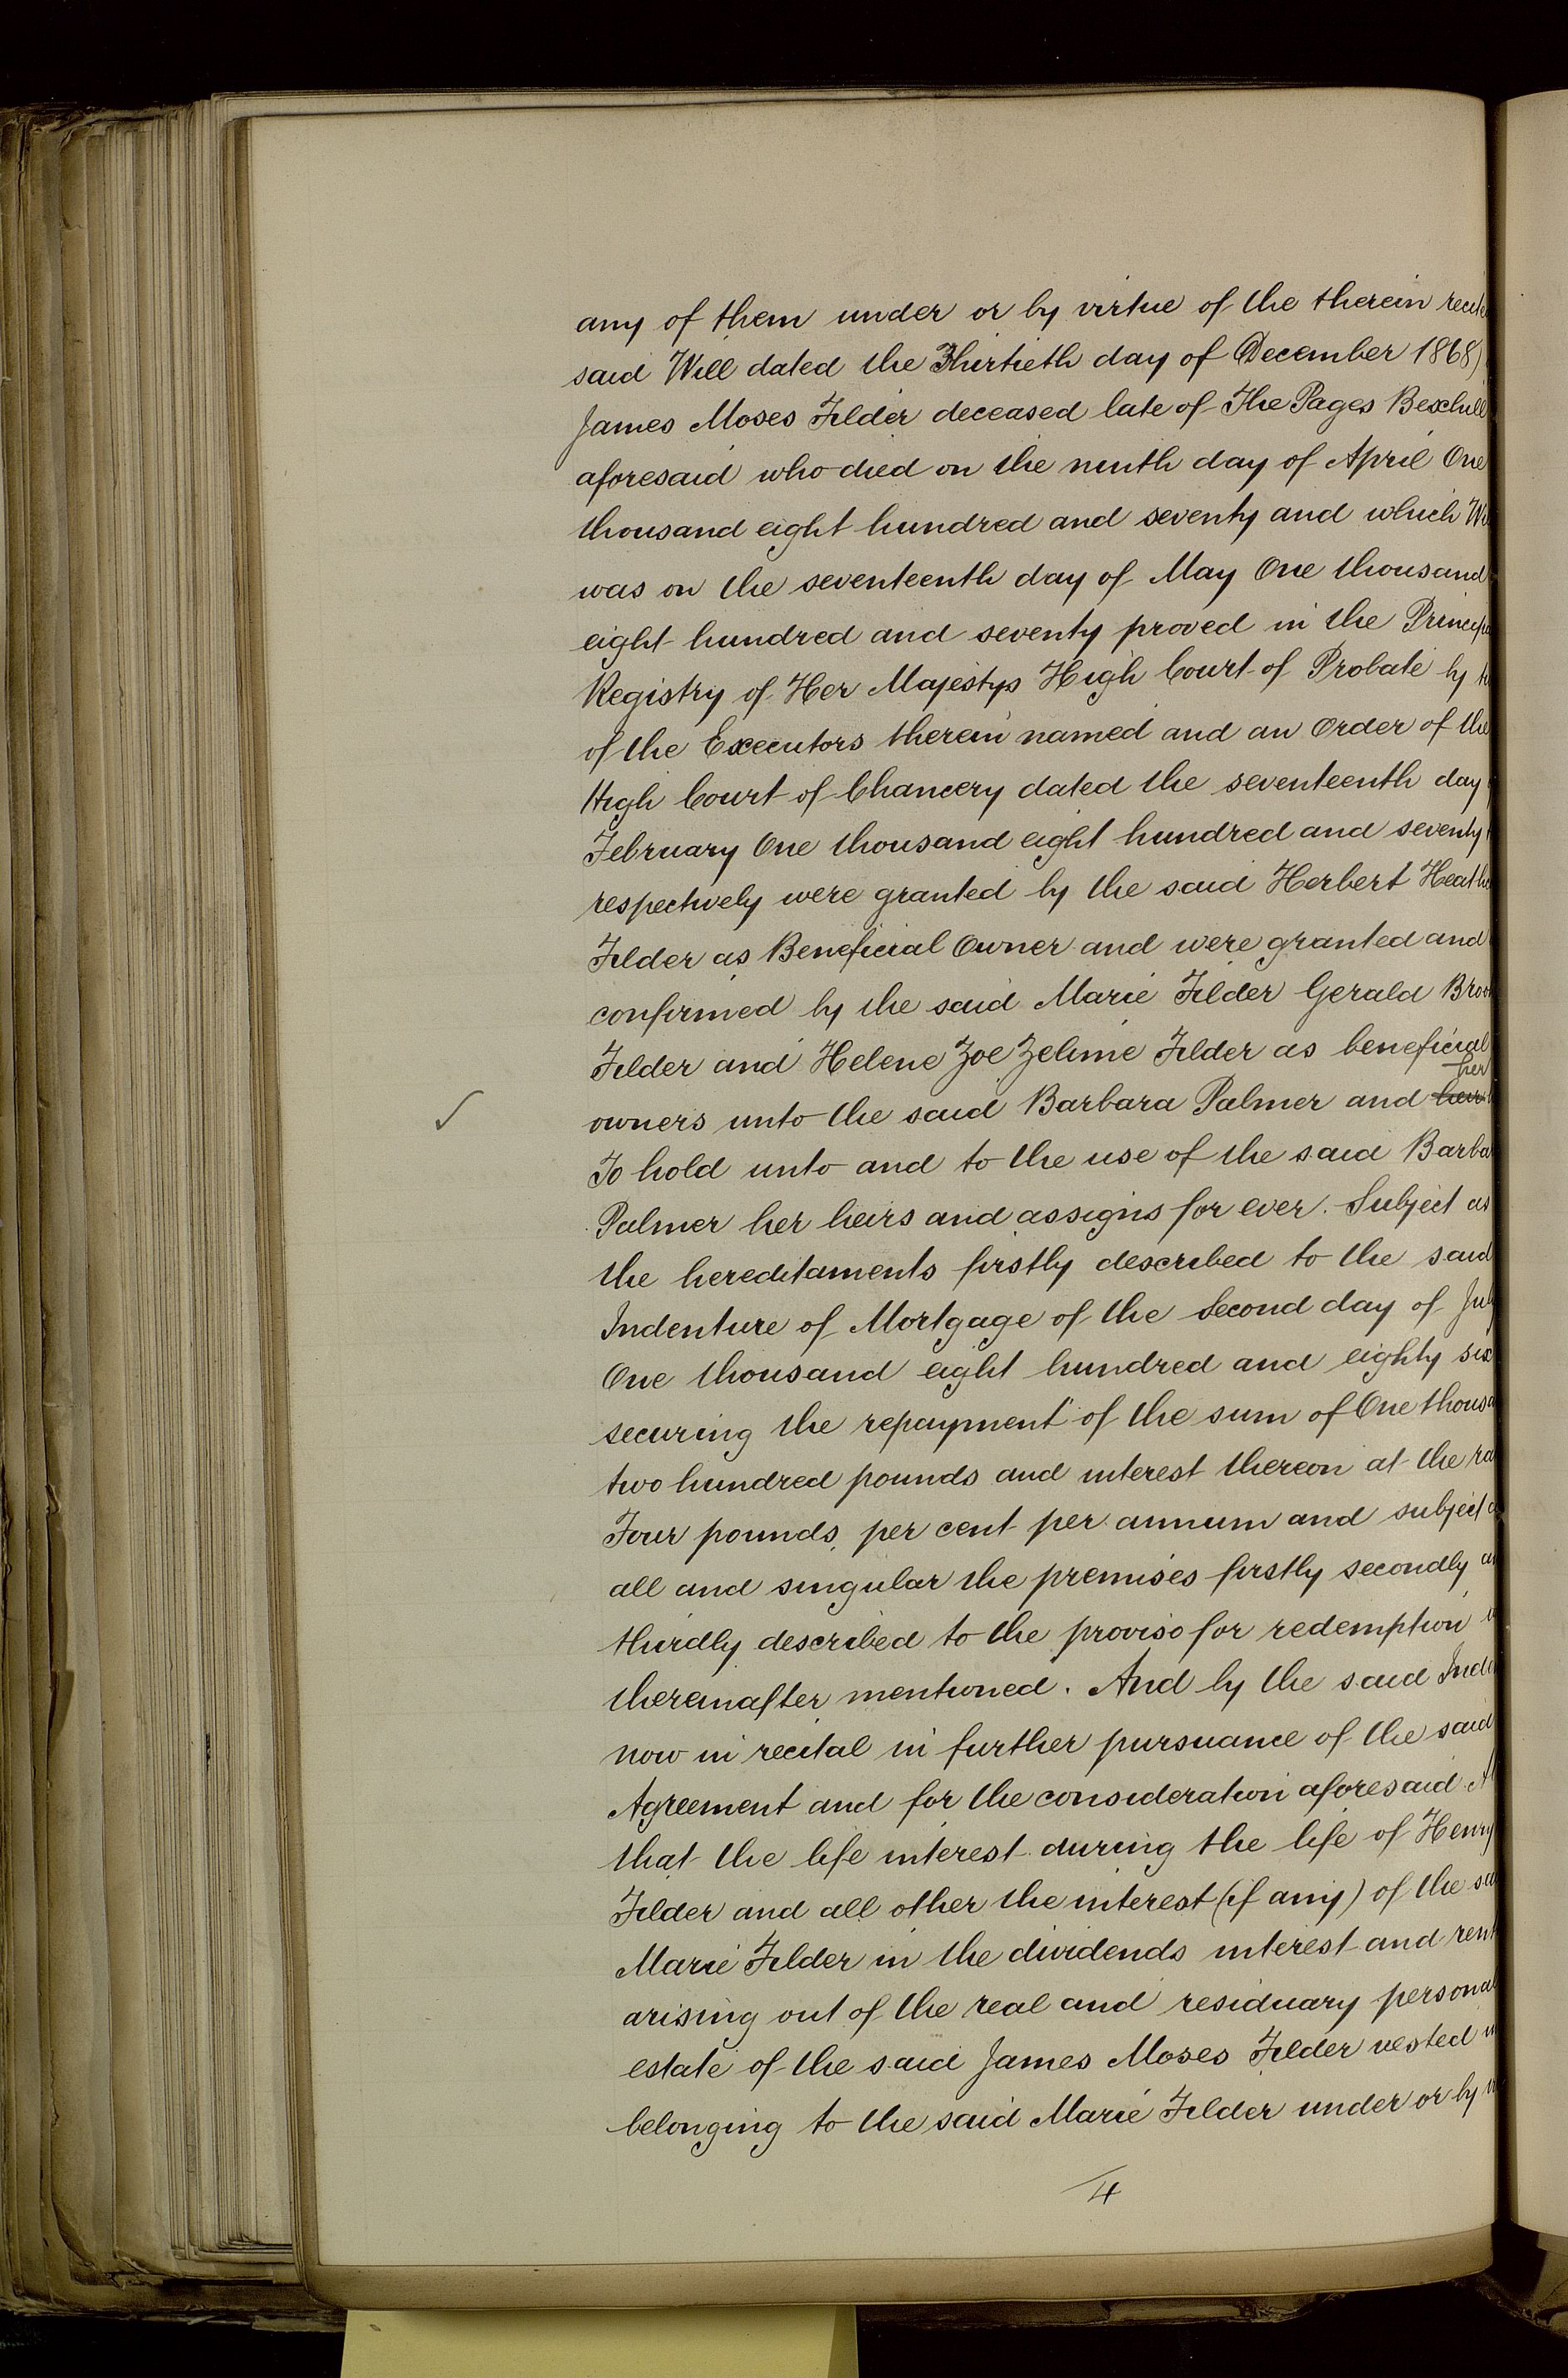 any of them under or by virtue of the therein
said Will dated the Thirtieth day of December 1868)
James Moses Filder deceased late of The Pages Bexhill
aforesaid who died on the ninth day of April One
thousand eight hundred and seventy and which
was on the seventeenth day of May One thousand
eight hundred and seventy proved in the
Registry of Her Majestys High Court of Probate by
of the Executors therein named and an Order of the
High Court of Chancery dated the seventeenth day
February One thousand eight hundred and seventy
respectively were granted by the said Herbert
Filder as Beneficial Owner and were granted and
confirmed by the said Marie Filder Gerald
Filder and Helene Zoe Zelime Filder as beneficial
her
owners unto the said Barbara Palmer and
To hold unto and to the use of the said
Palmer her heirs and assigns for ever. Subject as
the hereditaments firstly described to the said
Indenture of Mortgage of the Second day of
One thousand eight hundred and eighty six
securing the repayment of the sum of One
two hundred pounds and interest thereon at the
Four pounds per cent per annum and subject
all and singular the premises firstly secondly
thirdly described to the proviso for redemption
thereinafter mentioned. And by the said
now in recital in further pursuance of the said
Agreement and for the consideration aforesaid
that the life interest during the life of Henry
Filder and all other the interest (if any) of the
Marie Filder in the dividends interest and
arising out of the real and residuary personal
estate of the said James Moses Filder vested
belonging to the said Marie Filder under or by
4